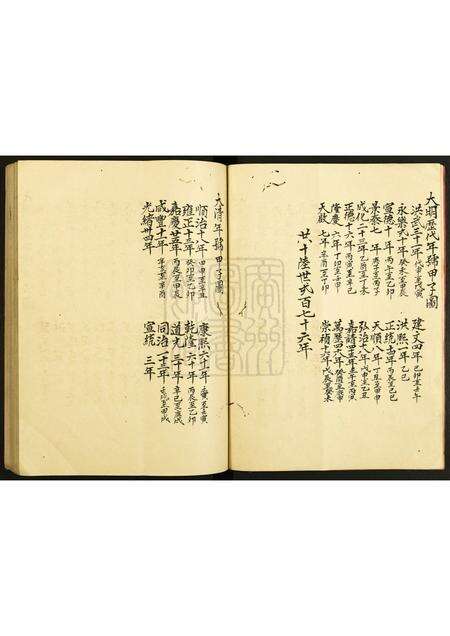 大明歷代年號甲子圖
洪武三十一年 戊申至戊寅
建文四年 己卯至壬午
永樂廿二年 癸未至甲辰
洪熙一年 乙巳
宣德十年 丙午至乙卯
正統十四年 丙辰至己巳
景泰七年 庚午至丙子
天順八年 丁丑至甲申
成化二十三年 乙酉至丁未
弘治十八年 戊申至乙丑
正德十六年 丙寅至辛巳
嘉靖四五年 壬午至丙寅
隆慶六年 丁卯至壬申
萬曆四八年 癸酉至庚申
天啟七年 辛酉至丁卯
崇禎十六年 戊辰至癸未
廿十陸世貳百七十六年
大清年號甲子圖
順治十八年 甲申至辛丑
康熙六十一年 壬寅
雍正十三年 癸卯至乙卯
乾隆六十年 丙辰至乙卯
嘉慶廿五年 丙辰至庚辰
道光三十年 辛巳至庚戌
咸豐十一年 辛亥至辛酉
同治十三年 壬戌至甲戌
光緒卅四年
宣統三年